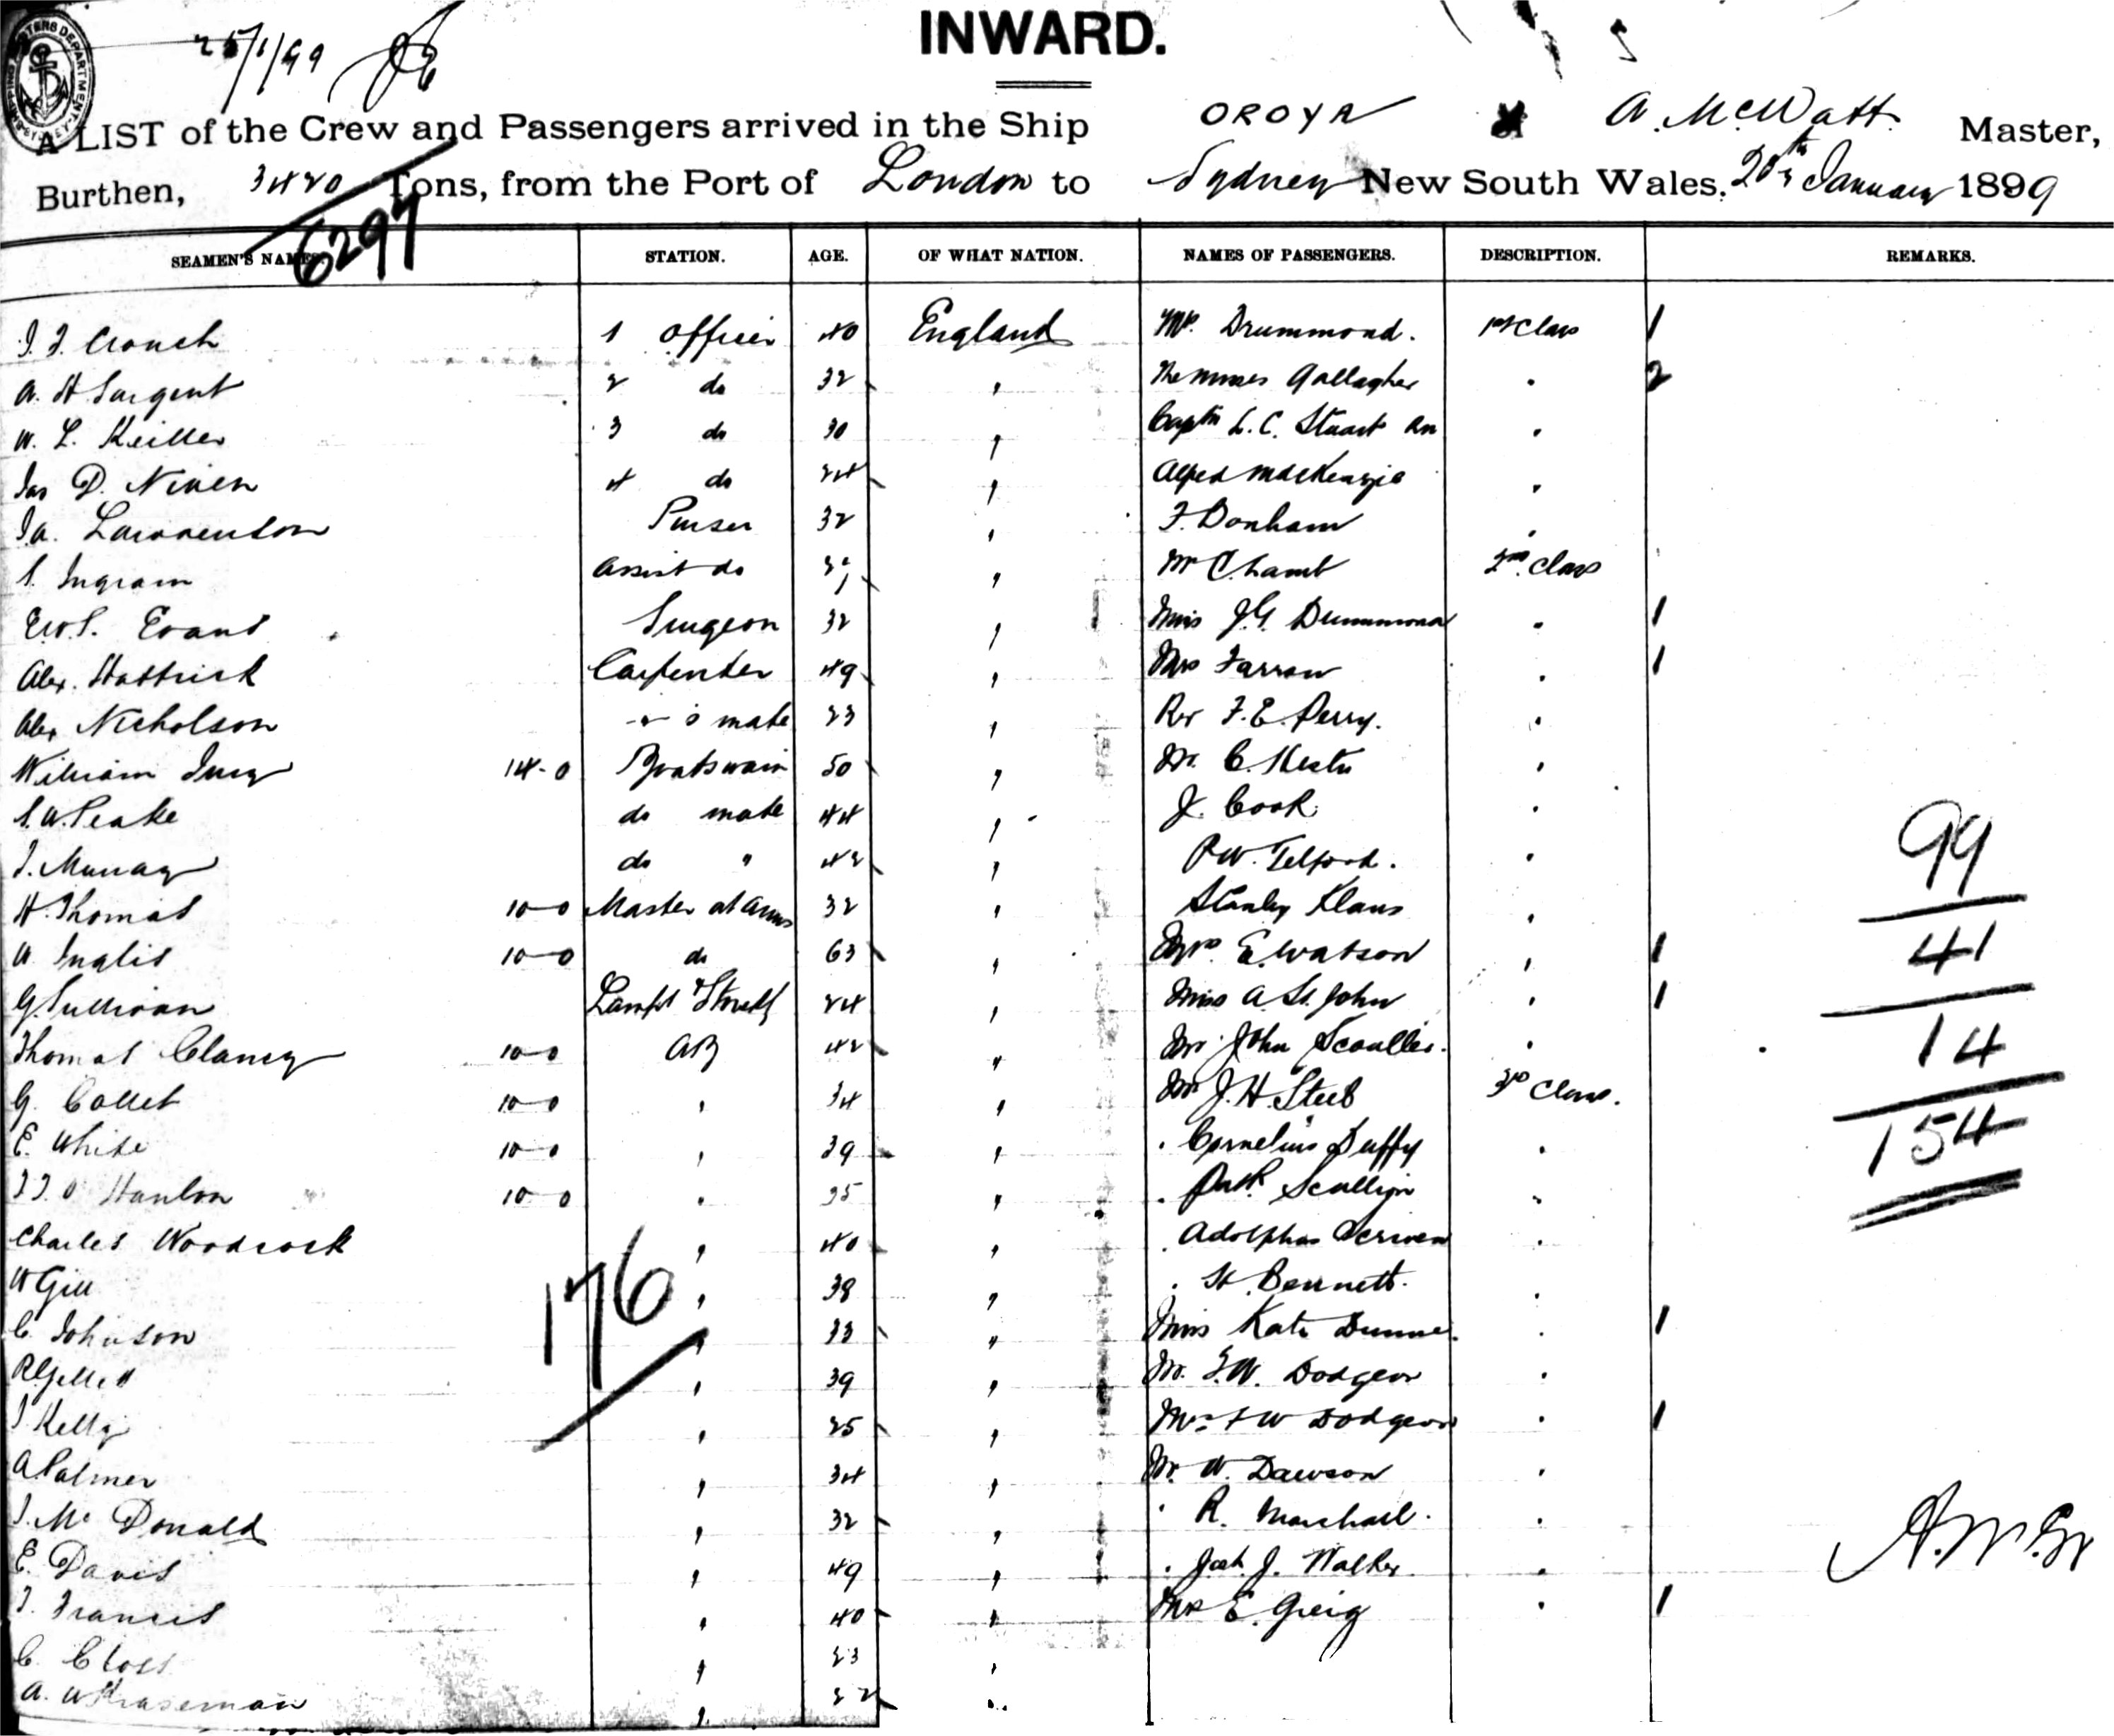 25/1/99
INWARD.
A LIST of the Crew and Passengers arrived in the Ship OROYA of A. McWatt Master,
Burthen, 3420 Tons, from the Port of London to Sydney New South Wales. 20th January 1899
6297
SEAMEN'S NAMES. STATION. AGE. OF WHAT NATION. NAMES OF PASSENGERS. DESCRIPTION. REMARKS.
J. F. Crouch 1 Officer 40 England Mrs. Drummond. 1st Class 1
A. H Sargent 2 do 32 " The Misses Gallagher " 2
W. L. Keiller 3 do 30 " Captn L. C. Stuart RN "
Jas D. Niven 4 do 24 " Alfred MacKenzie "
Ja. Lawrenson Purser 32 " F. Donham "
S. Ingram Assist do " Mr C. Lamb 2nd Class
E.W.S. Evans Surgeon 32 " Miss J. G. Drummond " 1
Alex. Hattrick Carpenter 49 " Mrs Farrow " 1
Alex Nicholson " s mate 23 " Rev F. E. Perry. "
William Jury 14-0 Boatswain 50 " Mr. C. "
S. W. Peake do mate 44 " J. Cook "
J. Murray do " 42 " P. W. Telford. "
H. Thomas 10-0 Master at Arms 32 " Stanley Klaus "
W Inglis 10-0 do 63 " Mrs. E. Watson " 1
G. Sullivan Lamps & Stores 24 " Miss A. St. John " 1
Thomas Clancy 10-0 AB 42 " Mr John Scouller. "
G. Collet 10-0 " 34 " Mr J. H. Steel 3rd Class.
E. White 10-0 " 39 " " Cornelius Duffy "
J. J. O'Hanlon 10-0 " 35 " " Patk. Scullion "
Charles Woodcock " 40 " " Adolphus Scriven "
W Gill " 38 " " H. Bennett. "
C. Johnson " 33 " Miss Kate Dunne. " 1
R Gillett " 39 " Mr. F. W. Dodgeon "
J Kelly " 25 " Mrs F W Dodgeon " 1
A. Palmer " 34 " Mr. W. Dawson "
J. McDonald " 32 " " R. Marshall. "
E. Davis " 49 " " J. Walker "
J. Francis " 40 " Mrs E. Greig " 1
C. Closs " 23 "
A. W Kraseman " 22 "
176
99
41
14
154